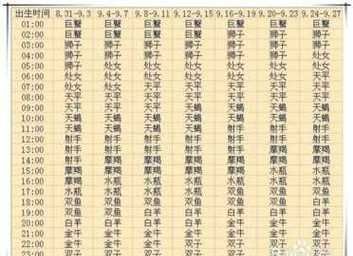 出生时间 8.31-9.3 9.4-9.7 9.8-9.11 9.12-9.15 9.16-9.19 9.20-9.23 9.24-9.27
01:00 巨蟹 巨蟹 巨蟹 巨蟹 巨蟹 巨蟹 狮子
02:00 巨蟹 巨蟹 巨蟹 狮子 狮子 狮子 狮子
03:00 狮子 狮子 狮子 狮子 狮子 狮子 狮子
04:00 狮子 狮子 狮子 狮子 狮子 处女 处女
05:00 狮子 处女 处女 处女 处女 处女 处女
06:00 处女 处女 处女 处女 处女 处女 天平
07:00 处女 处女 天平 天平 天平 天平 天平
08:00 天平 天平 天平 天平 天平 天平 天平
09:00 天平 天平 天平 天蝎 天蝎 天蝎 天蝎
10:00 天蝎 天蝎 天蝎 天蝎 天蝎 天蝎 天蝎
11:00 天蝎 天蝎 天蝎 天蝎 射手 射手 射手
12:00 射手 射手 射手 射手 射手 射手 射手
13:00 射手 射手 射手 射手 射手 摩羯 摩羯
14:00 射手 射手 摩羯 摩羯 摩羯 摩羯 摩羯
15:00 摩羯 摩羯 摩羯 摩羯 摩羯 水瓶 水瓶
16:00 摩羯 水瓶 水瓶 水瓶 水瓶 水瓶 水瓶
17:00 水瓶 水瓶 水瓶 水瓶 双鱼 双鱼 双鱼
18:00 双鱼 双鱼 双鱼 双鱼 双鱼 双鱼 白羊
19:00 双鱼 双鱼 白羊 白羊 白羊 白羊 白羊
20:00 白羊 白羊 白羊 白羊 金牛 金牛 金牛
21:00 金牛 金牛 金牛 金牛 金牛 金牛 金牛
22:00 金牛 金牛 金牛 双子 双子 双子 双子